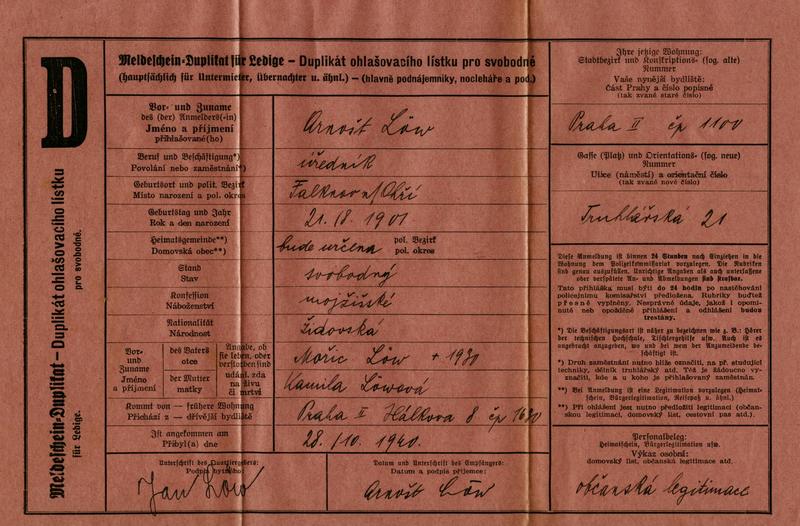 D
Meldeschein-Duplikat – Duplikát ohlašovacího lístku
für Ledige. pro svobodné.
Meldeschein-Duplikat für Ledige – Duplikát ohlašovacího lístku pro svobodné
(hauptsächlich für Untermieter, Übernachter u. ähnl.) – (hlavně podnájemníky, nocleháře a pod.)
Vor- und Zuname
des (der) Anmelders(-in)
Jméno a příjmení
přihlašované(ho)
Arnošt Löw
Beruf und Beschäftigung*)
Povolání nebo zaměstnání*)
úředník
Geburtsort und polit. Bezirk
Místo narození a pol. okres
Falknov n/Ohří
Geburtstag und Jahr
Rok a den narození
21. 18. 1901
Heimatsgemeinde**)
Domovská obec**)
bude určena
pol. Bezirk
pol. okres
Stand
Stav
svobodný
Konfession
Náboženství
mojžíšské
Nationalität
Národnost
židovská
Vor-
und
Zuname
Jméno
a příjmení
des Vaters
otce
der Mutter
matky
Angabe, ob
sie leben, oder
verstorben sind
udání, zda
na živu
či mrtvi
Mořic Löw + 1930
Kamila Löwová
Kommt von – frühere Wohnung
Přichází z – dřívější bydliště
Praha II Hálkova 8 čp 1630
Ist angekommen am
Přibyl(a) dne
28. /10. 1940.
Unterschrift des Quartiergebers:
Podpis bytného:
Jan Löw
Datum und Unterschrift des Empfängers:
Datum a podpis příjemce:
Arnošt Löw
Ihre jetzige Wohnung:
Stadtbezirk und Konskriptions- (sog. alte)
Nummer
Vaše nynější bydliště:
Část Prahy a číslo popisné
(tak zvané staré číslo)
Praha II čp 1100
Gasse (Platz) und Orientations- (sog. neue)
Nummer
Ulice (náměstí) a orientační číslo
(tak zvané nové číslo)
Truhlářská 21
Diese Anmeldung ist binnen 24 Stunden nach Einziehen in die
Wohnung dem Polizeikommissariat vorzulegen. Die Rubriken
sind genau auszufüllen. Unrichtige Angaben als auch unterlassene
oder verspätete An- und Abmeldungen sind strafbar.
Tato přihláška musí býti do 24 hodin po nastěhování
policejnímu komisařství předložena. Rubriky buďtež
přesně vyplněny. Nesprávné údaje, jakož i opomi-
nuté neb opožděné přihlášení a odhlášení budou
trestány.
*) Die Beschäftigungsart ist näher zu bezeichnen wie z. B.: Hörer
der technischen Hochschule, Tischlergehilfe usw. Auch ist es
angebracht anzugeben, wo und bei wem der Anzumeldende be-
schäftigt ist.
*) Druh zaměstnání nutno blíže označiti, na př. studující
techniky, dělník truhlářský atd. Též je žádoucno vy-
značiti, kde a u koho je přihlašovaný zaměstnán.
**) Bei Anmeldung ist eine Legitimation vorzulegen (Heimat-
schein, Bürgerlegitimation, Reisepaß u. ähnl.).
**) Při ohlášení jest nutno předložiti legitimaci (občan-
skou legitimaci, domovský list, cestovní pas atd.).
Personalbeleg:
Heimatschein, Bürgerlegitimation usw.
Výkaz osobní:
domovský list, občanská legitimace atd.
občanská legitimace